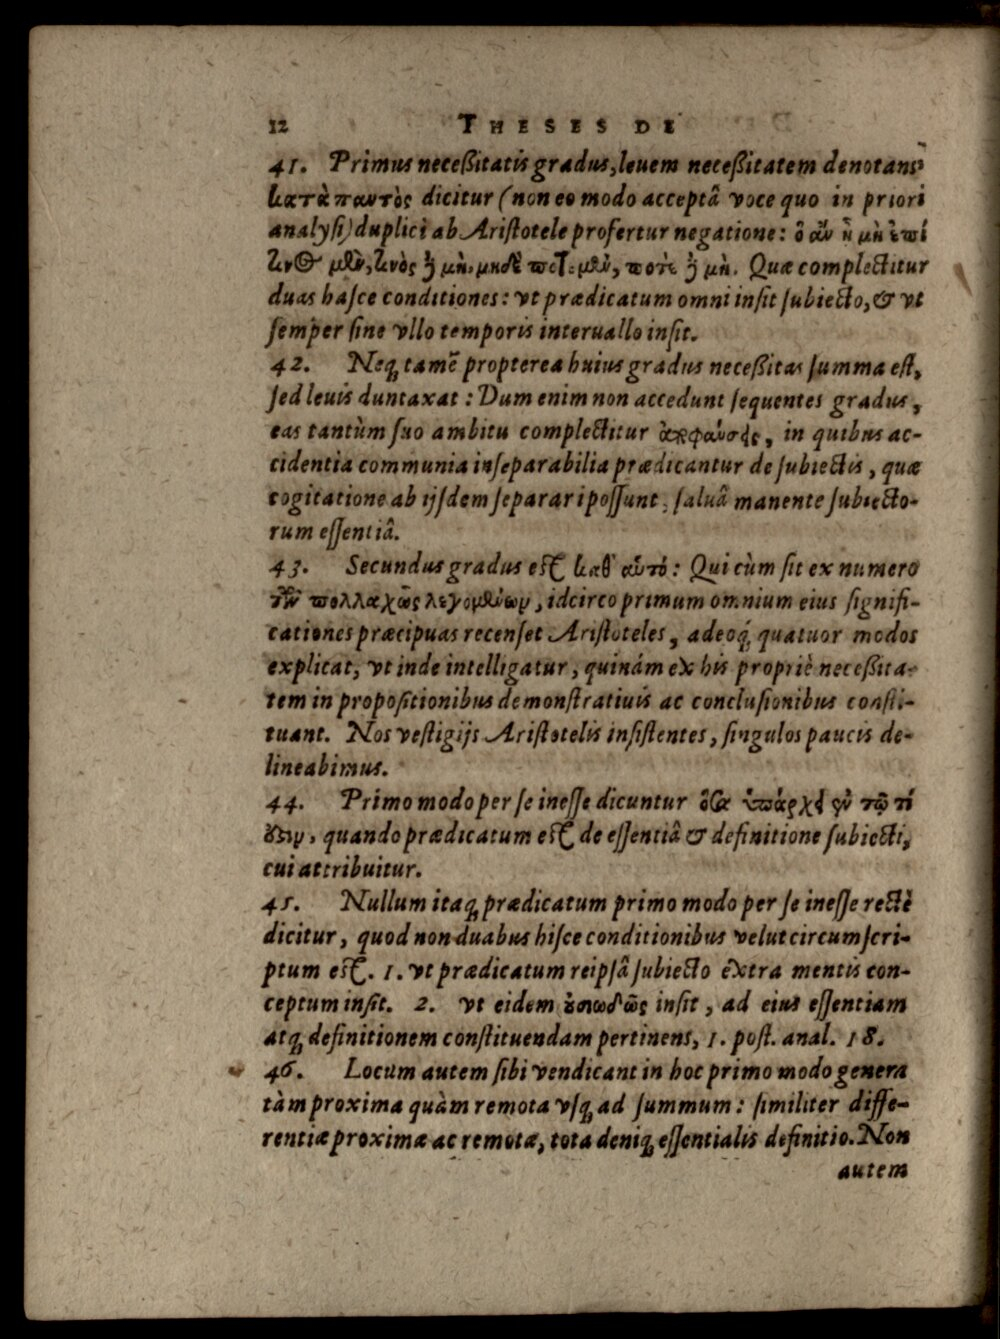 12 THESES DE
41. Primus neceßitatis gradus, leuem neceßitatem denotans,
κατὰ παντὸς dicitur (non eo modo acceptâ voce quo in priori
analysi) duplici ab Aristotele profertur negatione: ὃ ἂν ᾖ μὴ ἐπί
τινος μὲν, τινὸς δὲ μὴ, μηδὲ ποτὲ μὲν, ποτὲ δὲ μὴ. Quæ complectitur
duas hasce conditiones: vt prædicatum omni insit subiecto, & vt
semper sine vllo temporis interuallo insit.
42. Neq; tamē propterea huius gradus neceßitas summa est,
sed leuis duntaxat: Dum enim non accedunt sequentes gradus,
eas tantùm suo ambitu complectitur ἀποφάνσεις, in quibus ac-
cidentia communia inseparabilia prædicantur de subiectis, quæ
cogitatione ab ijsdem separari possunt, saluâ manente subiecto-
rum essentiâ.
43. Secundus gradus est καθ' αὑτό: Qui cùm sit ex numero
τῶν πολλαχῶς λεγομένων, idcirco primum omnium eius signifi-
cationes præcipuas recenset Aristoteles, adeoq́; quatuor modos
explicat, vt inde intelligatur, quinám ex his propriè neceßita-
tem in propositionibus demonstratiuis ac conclusionibus consti-
tuant. Nos vestigijs Aristotelis insistentes, singulos paucis de-
lineabimus.
44. Primo modo per se inesse dicuntur ὅσα ὑπάρχει ἐν τῷ τί
ἐστιν, quando prædicatum est de essentiâ & definitione subiecti,
cui attribuitur.
45. Nullum itaq; prædicatum primo modo per se inesse rectè
dicitur, quod non duabus hisce conditionibus velut circumscri-
ptum est. 1. vt prædicatum reipsâ subiecto extra mentis con-
ceptum insit. 2. vt eidem οὐσιωδῶς insit, ad eius essentiam
atq; definitionem constituendam pertinens, 1. post. anal. 18.
46. Locum autem sibi vendicant in hoc primo modo genera
tàm proxima quàm remota vsq; ad summum: similiter diffe-
rentiæ proximæ ac remotæ, tota deniq; essentialis definitio. Non
autem